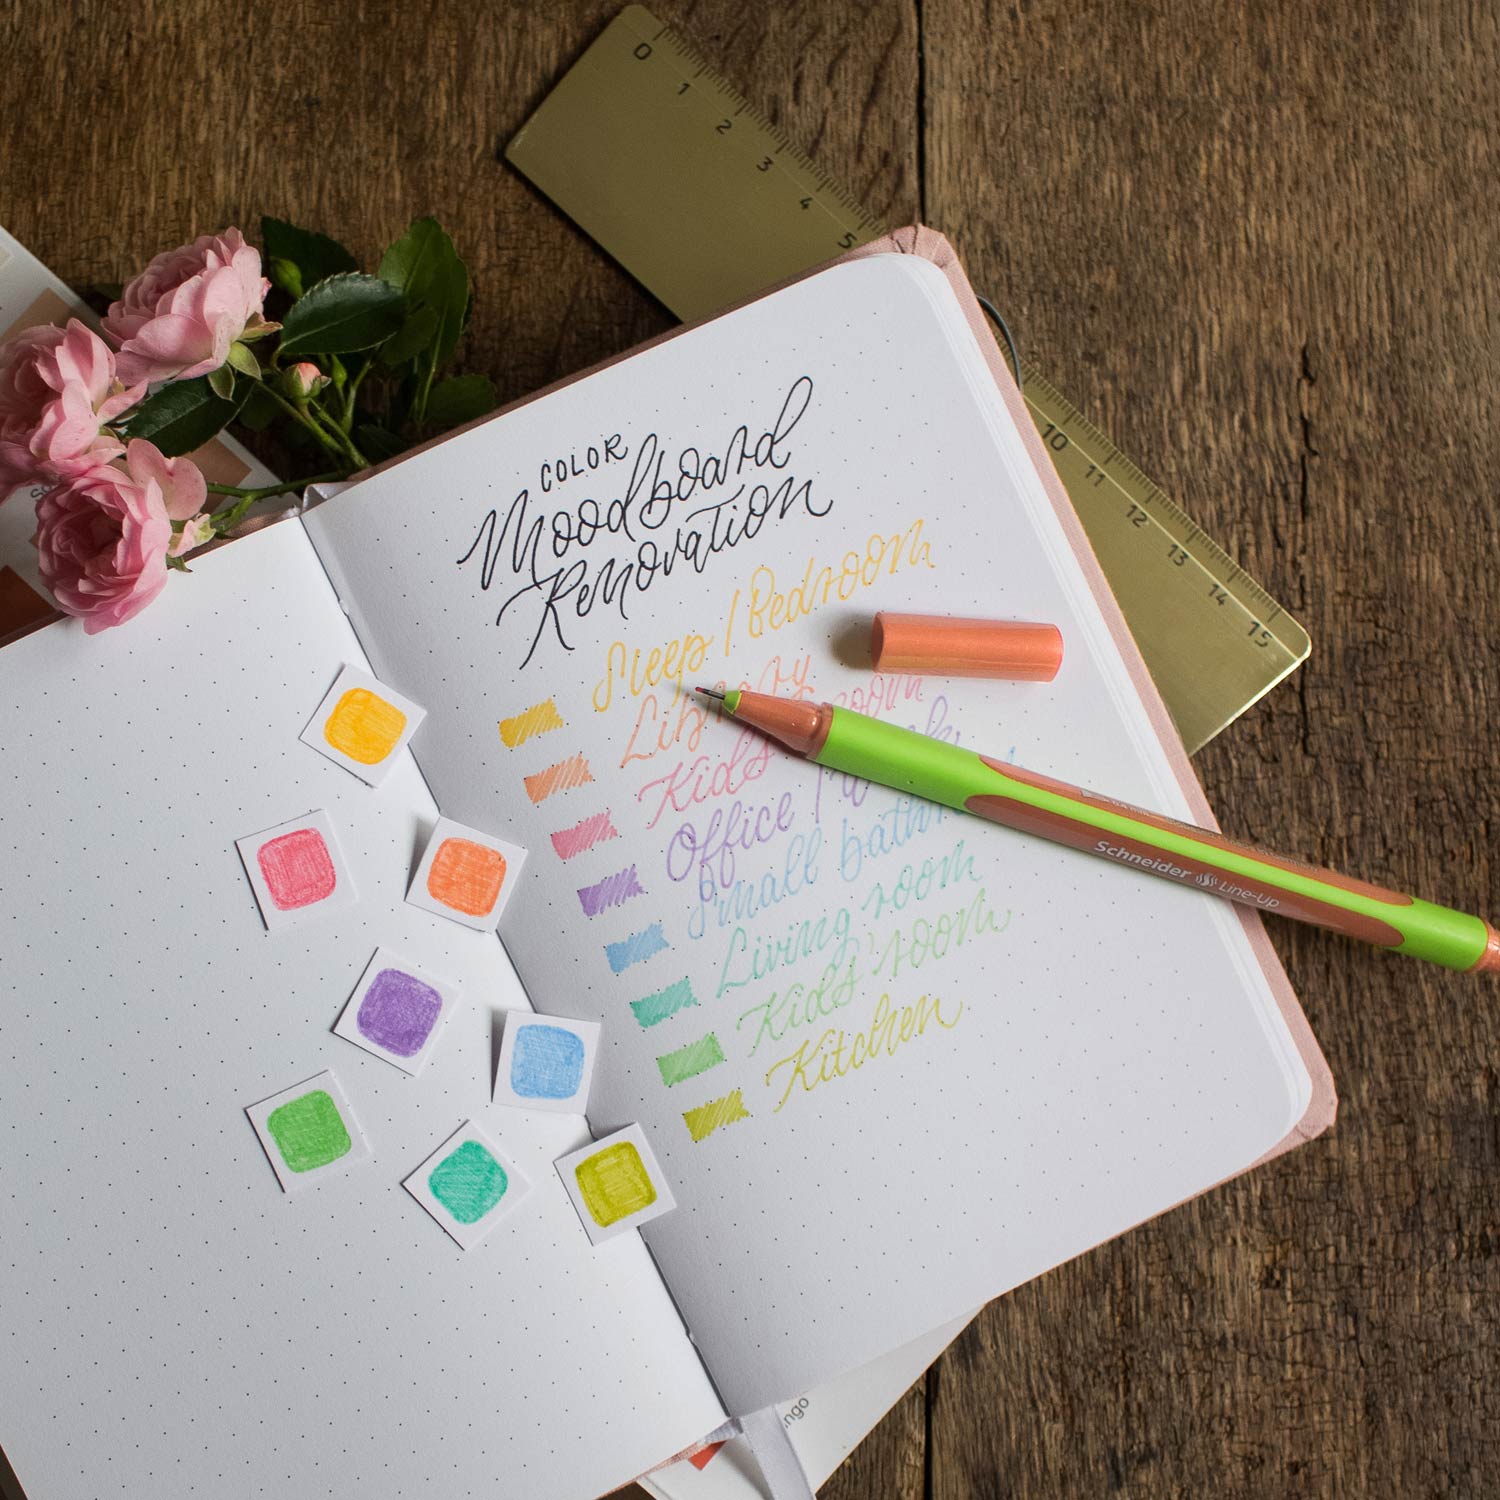 0 1 2 3 4 5
10 11 12 13 14 15
COLOR
Moodboard
Renovation
Sleep / Bedroom
Library
Kids' room
Office /
Small
Living room
Kids' room
Kitchen
Schneider Line-Up